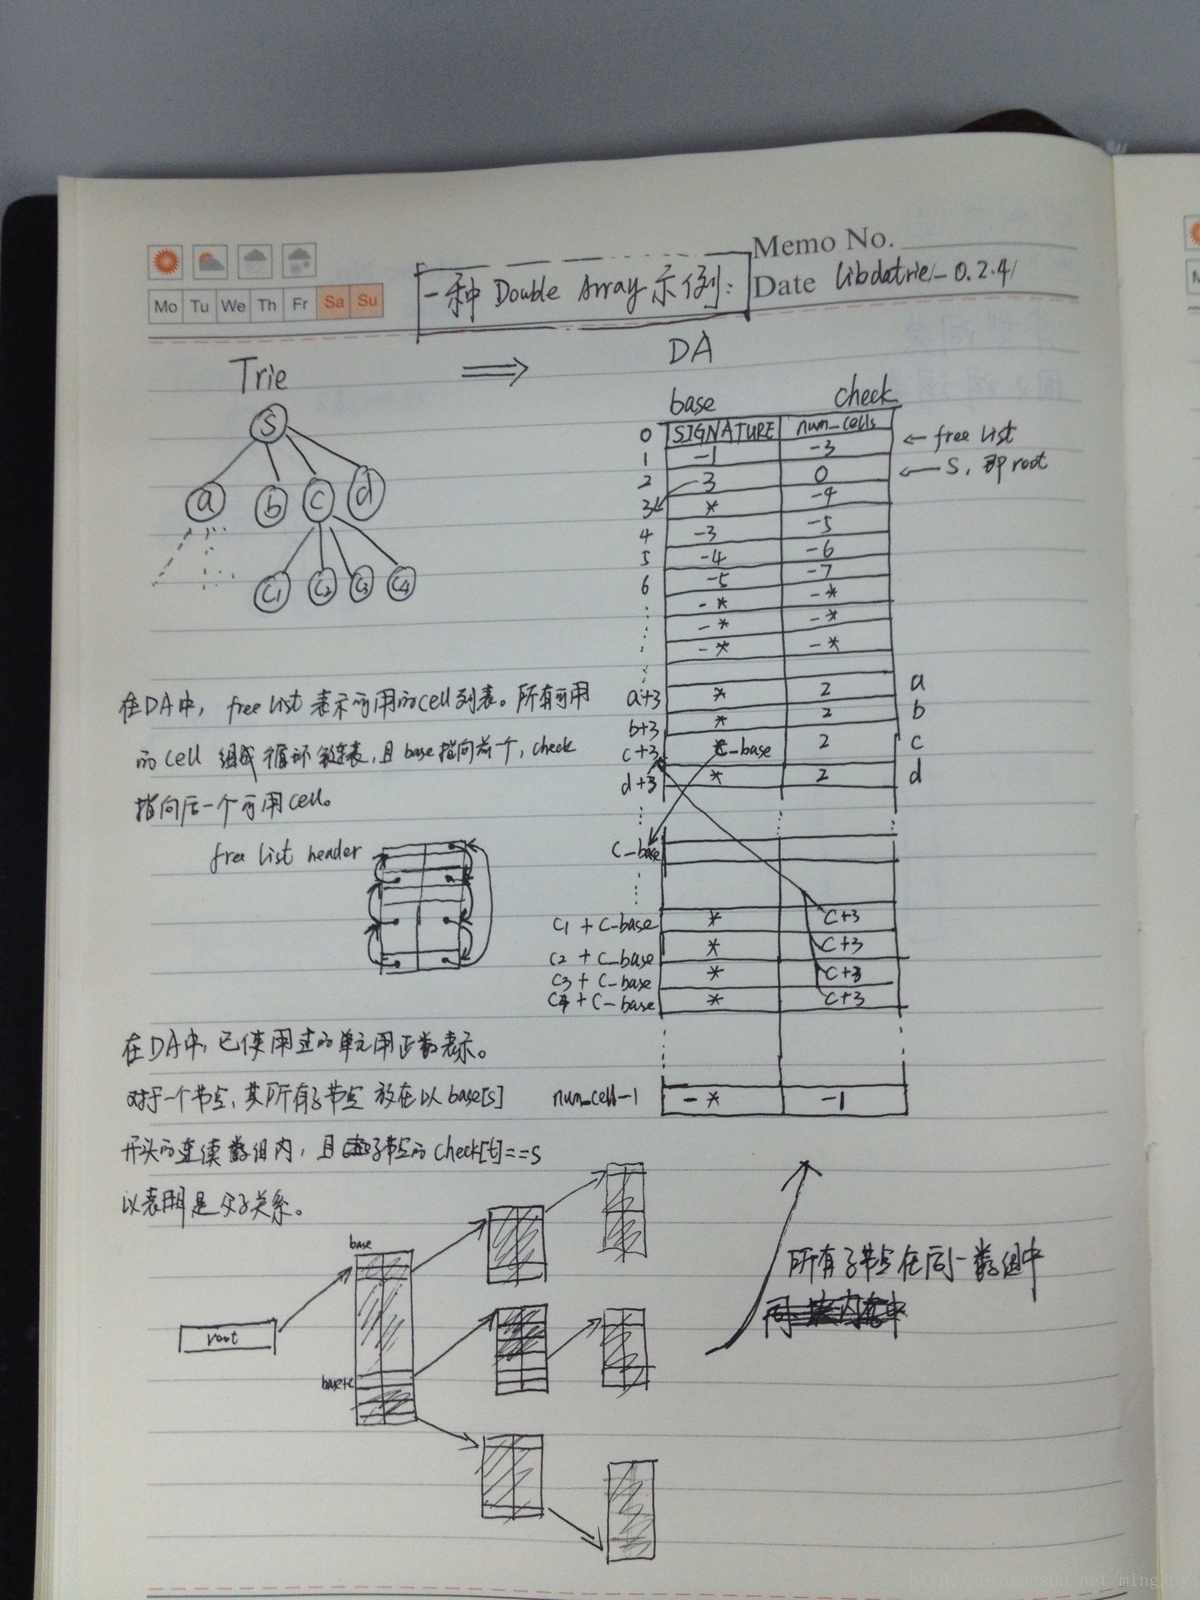 Memo No.
一种 Double Array 示例：
Date libdatrie-0.2.4
Mo Tu We Th Fr Sa Su
Trie
DA
base check
S
a b c d
C1 C2 C3 C4
0 SIGNATURE num_cells
1 -1 -3 ← free list
2 3 0 ← S, 即root
3 * -4
4 -3 -5
5 -4 -6
6 -5 -7
-* -*
-* -*
-* -*
a+3 * 2 a
b+3 * 2 b
c+3 c-base 2 c
d+3 * 2 d
c-base
c1 + c-base * c+3
c2 + c-base * c+3
c3 + c-base * c+3
c4 + c-base * c+3
num_cell-1 -* -1
在DA中，free list 表示可用的cell列表。所有可用
的cell 组成循环链表，且base指向前一个，check
指向后一个可用cell。
free list header
在DA中，已使用过的单元用正数表示。
对于一个节点，其所有子节点 放在以base[s]
开头的连续数组内，且子节点的check[t]==s
以表明是父子关系。
base
root
base+c
所有子节点在同一数组中
http://blog.csdn.net/mingspy